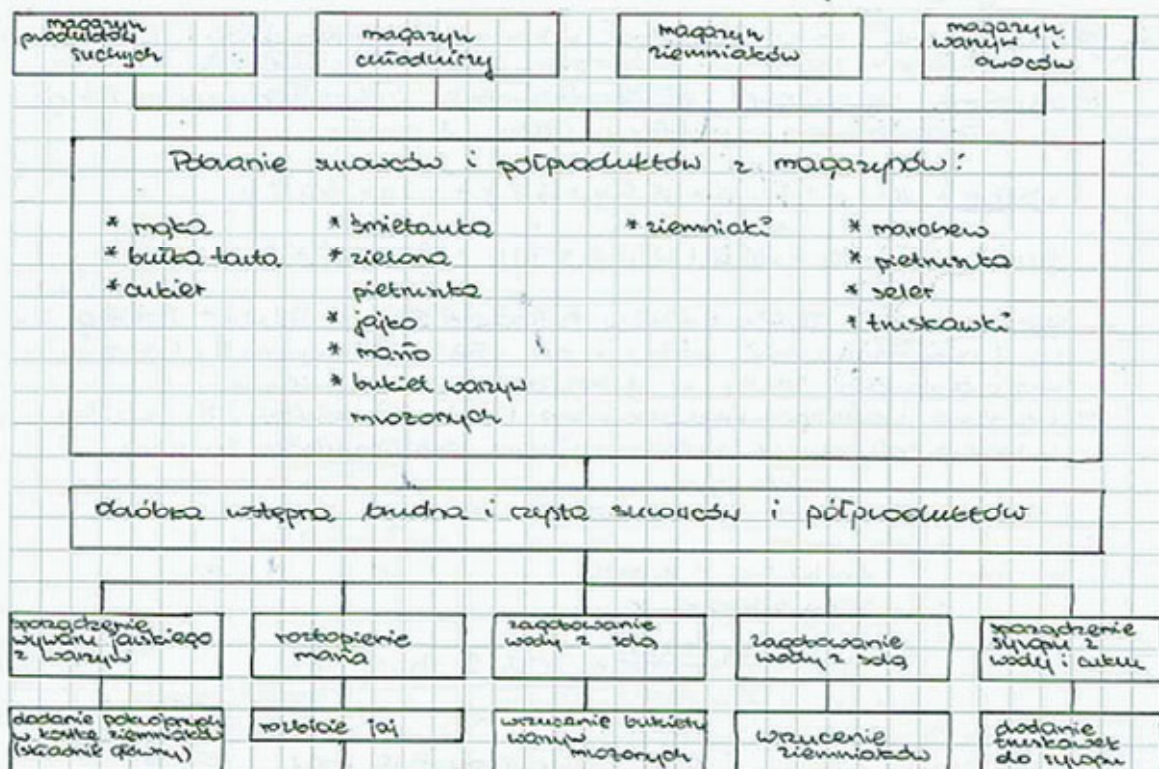 magazyn
produktów
suchych
magazyn
chłodniczy
magazyn
ziemniaków
magazyn
warzyw i
owoców
Pobranie surowców i półproduktów z magazynów:
* mąka
* bułka tarta
* cukier
* śmietanka
* zielona
pietruszka
* jajko
* masło
* bukiet warzyw
mrożonych
* ziemniaki
* marchew
* pietruszka
* seler
* truskawki
obróbka wstępna brudna i czysta surowców i półproduktów
sporządzenie
wywaru jarskiego
z warzyw
roztopienie
masła
zagotowanie
wody z solą
zagotowanie
wody z solą
sporządzenie
syropu z
wody i cukru
dodanie pokrojonych
w kostkę ziemniaków
(składnik główny)
rozbicie jaj
wrzucenie bukietu
warzyw
mrożonych
wrzucenie
ziemniaków
dodanie
truskawek
do syropu